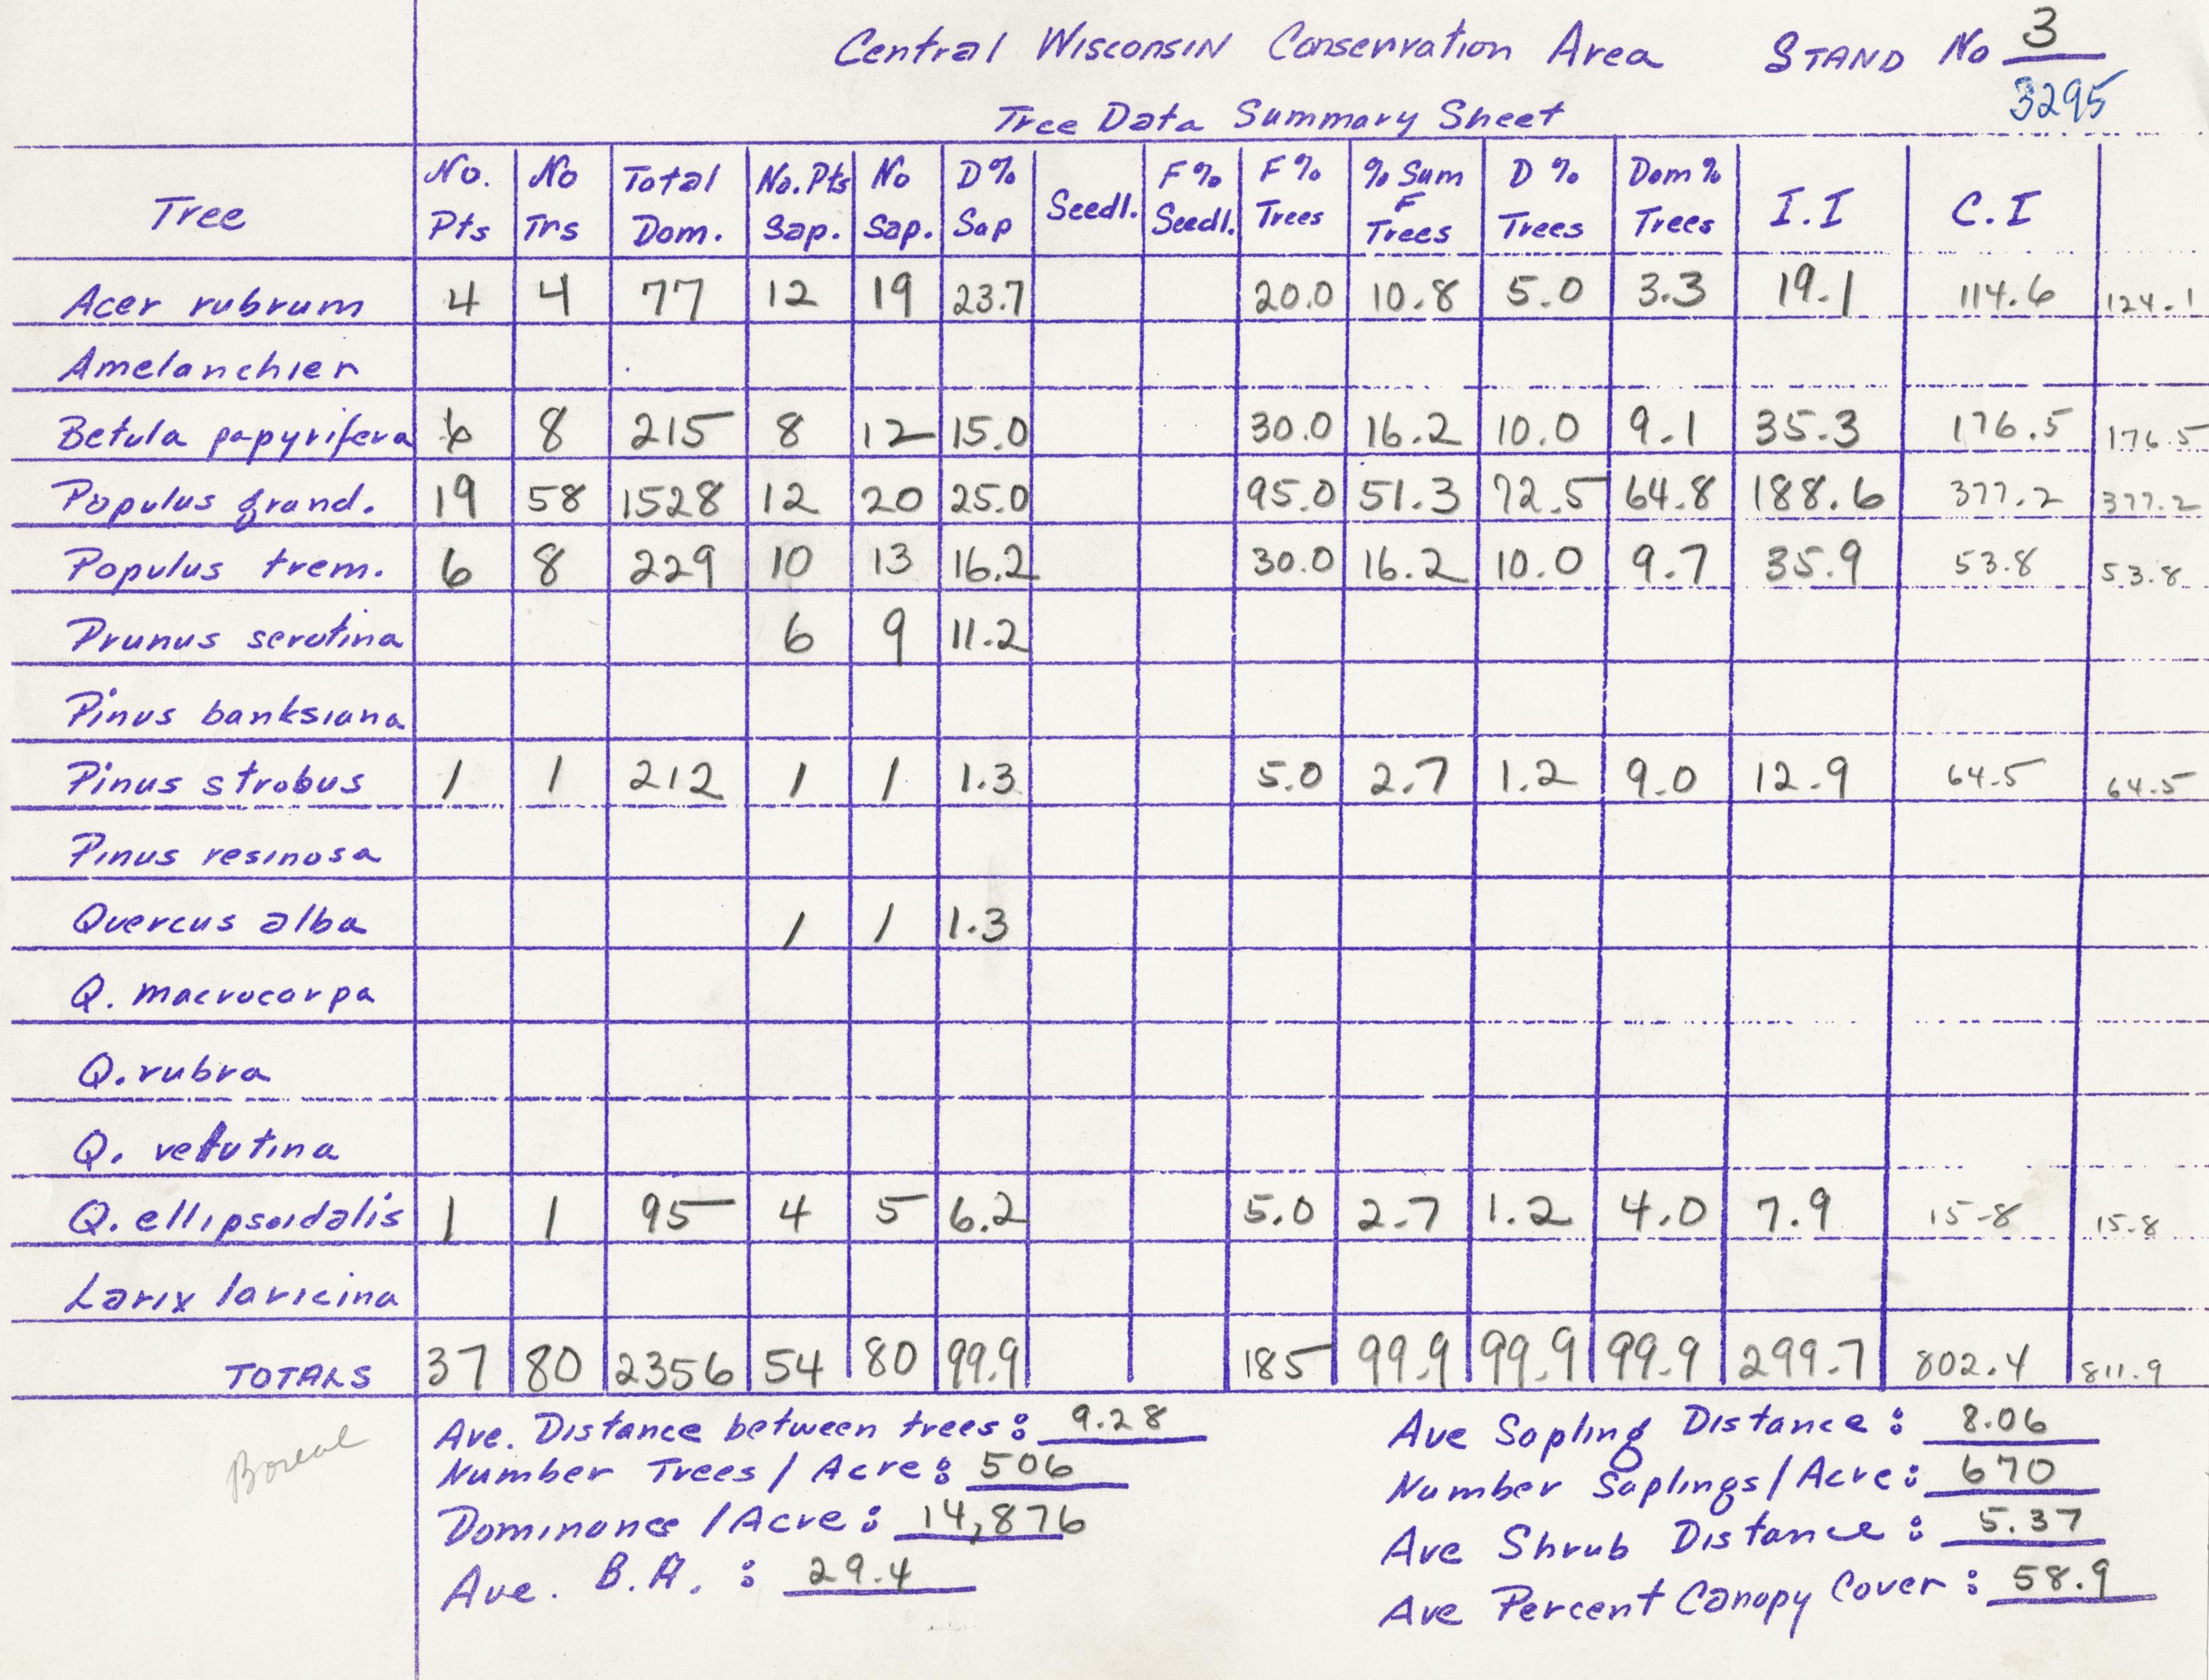 Central Wisconsin Conservation Area STAND No 3
3295
Tree Data Summary Sheet
Tree No. Pts No Trs Total Dom. No. Pts Sap. No Sap. D% Sap Seedl. F% Seedl. F% Trees % Sum F Trees D % Trees Dom % Trees I.I C.I
Acer rubrum 4 4 77 12 19 23.7 20.0 10.8 5.0 3.3 19.1 114.6 124.1
Amelanchier
Betula papyrifera 6 8 215 8 12 15.0 30.0 16.2 10.0 9.1 35.3 176.5 176.5
Populus grand. 19 58 1528 12 20 25.0 95.0 51.3 72.5 64.8 188.6 377.2 377.2
Populus trem. 6 8 229 10 13 16.2 30.0 16.2 10.0 9.7 35.9 53.8 53.8
Prunus serotina 6 9 11.2
Pinus banksiana
Pinus strobus 1 1 212 1 1 1.3 5.0 2.7 1.2 9.0 12.9 64.5 64.5
Pinus resinosa
Quercus alba 1 1 1.3
Q. macrocarpa
Q. rubra
Q. velutina
Q. ellipsoidalis 1 1 95 4 5 6.2 5.0 2.7 1.2 4.0 7.9 15.8 15.8
Larix laricina
TOTALS 37 80 2356 54 80 99.9 185 99.9 99.9 99.9 299.7 802.4 811.9
Boreal
Ave. Distance between trees: 9.28
Number Trees / Acre: 506
Dominance / Acre: 14,876
Ave. B.A. : 29.4
Ave Sapling Distance: 8.06
Number Saplings / Acre: 670
Ave Shrub Distance: 5.37
Ave Percent Canopy Cover: 58.9